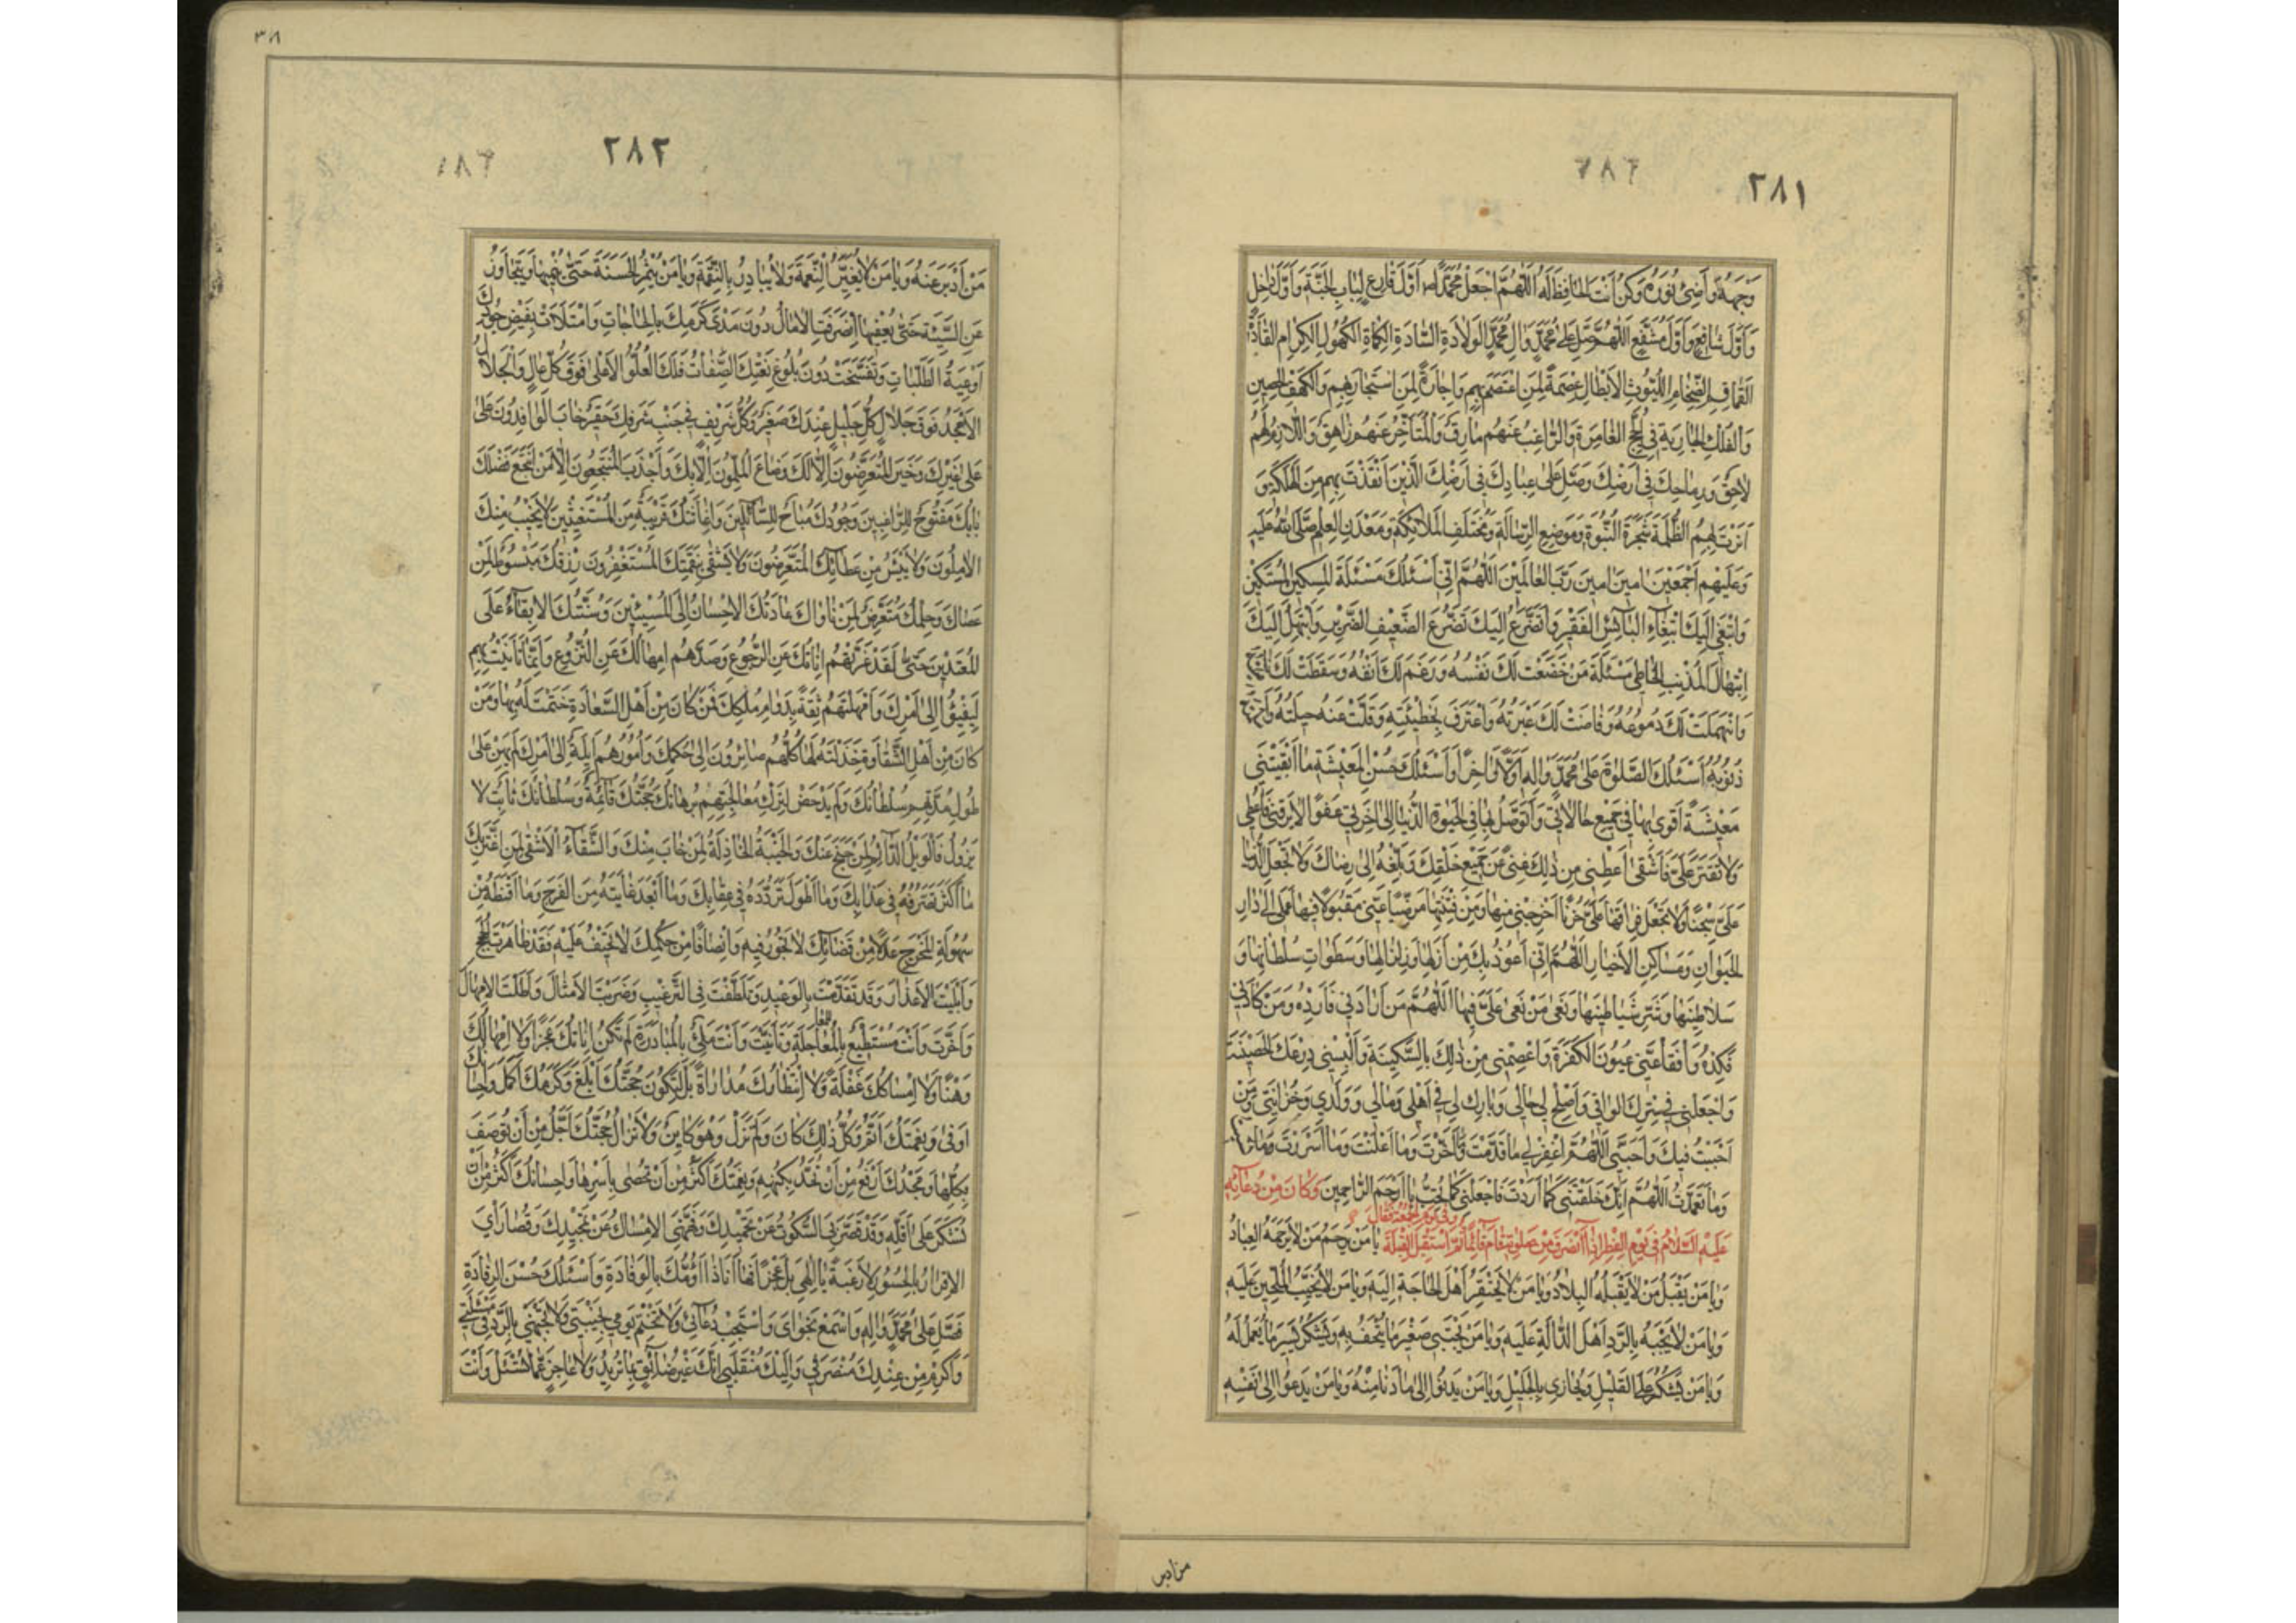 ٢٨١
وَجْهَهُ وَأَضِئْ نُورَهُ وَكُنْ أَنْتَ الْحَافِظَ لَهُ اَللّٰهُمَّ اجْعَلْ مُحَمَّدًا أَوَّلَ قَارِعٍ لِبَابِ الْجَنَّةِ وَأَوَّلَ دَاخِلٍ
وَأَوَّلَ شَافِعٍ وَأَوَّلَ مُشَفَّعٍ اَللّٰهُمَّ صَلِّ عَلَى مُحَمَّدٍ وَآلِ مُحَمَّدٍ الْوُلَاةِ السَّادَةِ الْكُمَاةِ الْكُهُولِ الْكِرَامِ الْقَادَةِ
الْقَمَاقِمِ الضِّخَامِ اللُّيُوثِ الْأَبْطَالِ عِصْمَةً لِمَنِ اعْتَصَمَ بِهِمْ وَإِجَارَةً لِمَنِ اسْتَجَارَ بِهِمْ وَالْكَهْفِ الْحَصِينِ
وَالْفُلْكِ الْجَارِيَةِ فِي اللُّجَجِ الْغَامِرَةِ وَالرَّاغِبُ عَنْهُمْ مَارِقٌ وَالْمُتَأَخِّرُ عَنْهُمْ زَاهِقٌ وَاللَّازِمُ لَهُمْ
لَاحِقٌ وَرِمَاحِكَ فِي أَرْضِكَ وَصَلِّ عَلَى عِبَادِكَ فِي أَرْضِكَ الَّذِينَ أَنْقَذْتَ بِهِمْ مِنَ الْهَلَكَةِ وَ
أَنَرْتَ بِهِمُ الظُّلْمَةَ شَجَرَةِ النُّبُوَّةِ وَمَوْضِعِ الرِّسَالَةِ وَمُخْتَلَفِ الْمَلَائِكَةِ وَمَعْدِنِ الْعِلْمِ صَلَّى اللهُ عَلَيْهِ
وَعَلَيْهِمْ أَجْمَعِينَ آمِينَ آمِينَ رَبَّ الْعَالَمِينَ اَللّٰهُمَّ إِنِّي أَسْئَلُكَ مَسْئَلَةَ الْمِسْكِينِ الْمُسْتَكِينِ
وَأَبْتَغِي إِلَيْكَ ابْتِغَاءَ الْبَائِسِ الْفَقِيرِ وَأَتَضَرَّعُ إِلَيْكَ تَضَرُّعَ الضَّعِيفِ الضَّرِيرِ وَأَبْتَهِلُ إِلَيْكَ
ابْتِهَالَ الْمُذْنِبِ الْخَاطِئِ مَسْئَلَةَ مَنْ خَضَعَتْ لَكَ نَفْسُهُ وَرَغَمَ لَكَ أَنْفُهُ وَسَقَطَتْ لَكَ نَاصِيَتُهُ
وَانْهَمَلَتْ لَكَ دُمُوعُهُ وَفَاضَتْ لَكَ عَبْرَتُهُ وَاعْتَرَفَ بِخَطِيئَتِهِ وَقَلَّتْ عَنْهُ حِيلَتُهُ
ذُنُوبُهُ أَسْئَلُكَ الصَّلٰوةَ عَلَى مُحَمَّدٍ وَآلِهِ أَوَّلًا وَآخِرًا وَأَسْئَلُكَ حُسْنَ الْمَعِيشَةِ مَا أَبْقَيْتَنِي
مَعِيشَةً أَقْوَى بِهَا فِي جَمِيعِ حَالَاتِي وَأَتَوَصَّلُ بِهَا فِي الْحَيٰوةِ الدُّنْيَا إِلَى آخِرَتِي عَفْوًا لَا تُرْفِنِي فَأَطْغَى
وَلَا تُقَتِّرْ عَلَيَّ فَأَشْقَى أَعْطِنِي مِنْ ذٰلِكَ غِنًى عَنْ جَمِيعِ خَلْقِكَ وَبُلْغَةً إِلَى رِضَاكَ وَلَا تَجْعَلِ الدُّنْيَا
عَلَيَّ سِجْنًا وَلَا تَجْعَلْ فِرَاقَهَا عَلَيَّ حُزْنًا أَخْرِجْنِي مِنْهَا وَمِنْ فِتْنَتِهَا مَرْضِيًّا عَنِّي مَقْبُولًا فِيهَا عَمَلِي إِلَى دَارِ
الْحَيَوَانِ وَمَسَاكِنِ الْأَخْيَارِ اَللّٰهُمَّ إِنِّي أَعُوذُ بِكَ مِنْ أَزْلِهَا وَزِلْزَالِهَا وَسَطَوَاتِ سُلْطَانِهَا وَ
سَلَاطِينِهَا وَشَرِّ شَيَاطِينِهَا وَبَغْيِ مَنْ بَغَى عَلَيَّ فِيهَا اَللّٰهُمَّ مَنْ أَرَادَنِي فَأَرِدْهُ وَمَنْ كَادَنِي
فَكِدْهُ وَافْقَأْ عَنِّي عُيُونَ الْكَفَرَةِ وَاعْصِمْنِي مِنْ ذٰلِكَ بِالسَّكِينَةِ وَأَلْبِسْنِي دِرْعَكَ الْحَصِينَةَ
وَاجْعَلْنِي فِي سِتْرِكَ الْوَاقِي وَأَصْلِحْ لِي حَالِي وَبَارِكْ لِي فِي أَهْلِي وَمَالِي وَوَلَدِي وَحُزَانَتِي وَمَنْ
أَحْبَبْتُ فِيكَ وَأَحَبَّنِي اَللّٰهُمَّ اغْفِرْ لِي مَا قَدَّمْتُ وَمَا أَخَّرْتُ وَمَا أَعْلَنْتُ وَمَا أَسْرَرْتُ
وَمَا تَعَمَّدْتُ اَللّٰهُمَّ إِنَّكَ خَلَقْتَنِي كَمَا أَرَدْتَ فَاجْعَلْنِي كَمَا تُحِبُّ يَا أَرْحَمَ الرَّاحِمِينَ وَكَانَ مِنْ دُعَائِهِ
وَفِي يَوْمِ الْجُمُعَةِ فَقَالَ
عَلَيْهِ السَّلَامُ فِي يَوْمِ الْفِطْرِ إِذَا انْصَرَفَ مِنْ صَلٰوتِهِ قَامَ قَائِمًا ثُمَّ اسْتَقْبَلَ الْقِبْلَةَ يَا مَنْ يَرْحَمُ مَنْ لَا يَرْحَمُهُ الْعِبَادُ
وَيَا مَنْ يَقْبَلُ مَنْ لَا يَقْبَلُهُ الْبِلَادُ وَيَا مَنْ لَا يَحْتَقِرُ أَهْلَ الْحَاجَةِ إِلَيْهِ وَيَا مَنْ لَا يُخَيِّبُ الْمُلِحِّينَ عَلَيْهِ
وَيَا مَنْ لَا يَجْبَهُ بِالرَّدِّ أَهْلَ الدَّالَّةِ عَلَيْهِ وَيَا مَنْ يَجْتَبِي صَغِيرَ مَا يُتْحَفُ بِهِ وَيَشْكُرُ يَسِيرَ مَا يُعْمَلُ لَهُ
وَيَا مَنْ يَشْكُرُ عَلَى الْقَلِيلِ وَيُجَازِي بِالْجَلِيلِ وَيَا مَنْ يَدْنُو إِلَى مَنْ دَنَا مِنْهُ وَيَا مَنْ يَدْعُو إِلَى نَفْسِهِ
من ادبر
٢٨٢
مَنْ أَدْبَرَ عَنْهُ وَيَا مَنْ لَا يُغَيِّرُ النِّعْمَةَ وَلَا يُبَادِرُ بِالنَّقِمَةِ وَيَا مَنْ يُثْمِرُ الْحَسَنَةَ حَتَّى يُنْمِيَهَا وَيَتَجَاوَزُ
عَنِ السَّيِّئَةِ حَتَّى يُعَفِّيَهَا انْصَرَفَتِ الْآمَالُ دُونَ مَدَى كَرَمِكَ بِالْحَاجَاتِ وَامْتَلَأَتْ بِفَيْضِ جُودِكَ
أَوْعِيَةُ الطَّلِبَاتِ وَتَفَسَّخَتْ دُونَ بُلُوغِ نَعْتِكَ الصِّفَاتُ فَلَكَ الْعُلُوُّ الْأَعْلَى فَوْقَ كُلِّ عَالٍ وَالْجَلَالُ
الْأَمْجَدُ فَوْقَ كُلِّ جَلَالٍ كُلُّ جَلِيلٍ عِنْدَكَ صَغِيرٌ وَكُلُّ شَرِيفٍ فِي جَنْبِ شَرَفِكَ حَقِيرٌ خَابَ الْوَافِدُونَ عَلَى
عَلَى غَيْرِكَ وَخَسِرَ الْمُتَعَرِّضُونَ إِلَّا لَكَ وَضَاعَ الْمُلِمُّونَ إِلَّا بِكَ وَأَجْدَبَ الْمُنْتَجِعُونَ إِلَّا مَنِ انْتَجَعَ فَضْلَكَ
بَابُكَ مَفْتُوحٌ لِلرَّاغِبِينَ وَجُودُكَ مُبَاحٌ لِلسَّائِلِينَ وَإِغَاثَتُكَ قَرِيبَةٌ مِنَ الْمُسْتَغِيثِينَ لَا يَخِيبُ مِنْكَ
الْآمِلُونَ وَلَا يَيْأَسُ مِنْ عَطَائِكَ الْمُتَعَرِّضُونَ وَلَا يَشْقَى بِنَقِمَتِكَ الْمُسْتَغْفِرُونَ رِزْقُكَ مَبْسُوطٌ لِمَنْ
عَصَاكَ وَحِلْمُكَ مُتَعَرِّضٌ لِمَنْ نَاوَاكَ عَادَتُكَ الْإِحْسَانُ إِلَى الْمُسِيئِينَ وَسُنَّتُكَ الْإِبْقَاءُ عَلَى
الْمُعْتَدِينَ حَتَّى لَقَدْ غَرَّتْهُمْ أَنَاتُكَ عَنِ الرُّجُوعِ وَصَدَّهُمْ إِمْهَالُكَ عَنِ النُّزُوعِ وَإِنَّمَا تَأَنَّيْتَ بِهِمْ
لِيَفِيئُوا إِلَى أَمْرِكَ وَأَمْهَلْتَهُمْ ثِقَةً بِدَوَامِ مُلْكِكَ فَمَنْ كَانَ مِنْ أَهْلِ السَّعَادَةِ خَتَمْتَ لَهُ بِهَا وَمَنْ
كَانَ مِنْ أَهْلِ الشَّقَاوَةِ خَذَلْتَهُ لَهَا كُلُّهُمْ صَائِرُونَ إِلَى حُكْمِكَ وَأُمُورُهُمْ آئِلَةٌ إِلَى أَمْرِكَ لَمْ يَهِنْ عَلَى
طُولِ مُدَّتِهِمْ سُلْطَانُكَ وَلَمْ يَدْحَضْ لِتَرْكِ مُعَاجَلَتِهِمْ بُرْهَانُكَ حُجَّتُكَ قَائِمَةٌ وَسُلْطَانُكَ ثَابِتٌ لَا
يَزُولُ فَالْوَيْلُ الدَّائِمُ لِمَنْ جَنَحَ عَنْكَ وَالْخَيْبَةُ الْخَاذِلَةُ لِمَنْ خَابَ مِنْكَ وَالشَّقَاءُ الْأَشْقَى لِمَنِ اغْتَرَّ بِكَ
مَا أَكْثَرَ تَصَرُّفَهُ فِي عَذَابِكَ وَمَا أَطْوَلَ تَرَدُّدَهُ فِي عِقَابِكَ وَمَا أَبْعَدَ غَايَتَهُ مِنَ الْفَرَجِ وَمَا أَقْنَطَهُ مِنْ
سُهُولَةِ الْمَخْرَجِ عَدْلًا مِنْ قَضَائِكَ لَا تَجُورُ فِيهِ وَإِنْصَافًا مِنْ حُكْمِكَ لَا تَحِيفُ عَلَيْهِ فَقَدْ ظَاهَرْتَ الْحُجَجَ
وَأَبْلَيْتَ الْأَعْذَارَ وَقَدْ تَقَدَّمْتَ بِالْوَعِيدِ وَتَلَطَّفْتَ فِي التَّرْغِيبِ وَضَرَبْتَ الْأَمْثَالَ وَأَطَلْتَ الْإِمْهَالَ
وَأَخَّرْتَ وَأَنْتَ مُسْتَطِيعٌ بِالْمُعَاجَلَةِ وَتَأَنَّيْتَ وَأَنْتَ مَلِيءٌ بِالْمُبَادَرَةِ لَمْ تَكُنْ أَنَاتُكَ عَجْزًا وَلَا إِمْهَالُكَ
وَهْنًا وَلَا إِمْسَاكُكَ غَفْلَةً وَلَا انْتِظَارُكَ مُدَارَاةً بَلْ لِتَكُونَ حُجَّتُكَ أَبْلَغَ وَكَرَمُكَ أَكْمَلَ وَإِحْسَانُكَ
أَوْفَى وَنِعْمَتُكَ أَتَمَّ وَكُلُّ ذٰلِكَ كَانَ وَلَمْ تَزَلْ وَهُوَ كَائِنٌ وَلَا تَزَالُ حُجَّتُكَ أَجَلُّ مِنْ أَنْ تُوصَفَ
بِكُلِّهَا وَمَجْدُكَ أَرْفَعُ مِنْ أَنْ تُحَدَّ بِكُنْهِهِ وَنِعْمَتُكَ أَكْثَرُ مِنْ أَنْ تُحْصَى بِأَسْرِهَا وَإِحْسَانُكَ أَكْثَرُ مِنْ أَنْ
تُشْكَرَ عَلَى أَقَلِّهِ وَقَدْ قَصَّرَ بِيَ السُّكُوتُ عَنْ تَحْمِيدِكَ وَفَهَّهَنِيَ الْإِمْسَاكُ عَنْ تَمْجِيدِكَ وَقُصَارَايَ
الْإِقْرَارُ بِالْحُسُورِ لَا رَغْبَةً يَا إِلٰهِي بَلْ عَجْزًا فَهَا أَنَا ذَا أَؤُمُّكَ بِالْوِفَادَةِ وَأَسْئَلُكَ حُسْنَ الرِّفَادَةِ
فَصَلِّ عَلَى مُحَمَّدٍ وَآلِهِ وَاسْمَعْ نَجْوَايَ وَاسْتَجِبْ دُعَائِي وَلَا تَخْتِمْ يَوْمِي بِخَيْبَتِي وَلَا تَجْبَهْنِي بِالرَّدِّ فِي مَسْئَلَتِي
وَأَكْرِمْ مِنْ عِنْدِكَ مُنْصَرَفِي وَإِلَيْكَ مُنْقَلَبِي إِنَّكَ غَيْرُ ضَائِقٍ بِمَا تُرِيدُ وَلَا عَاجِزٍ عَمَّا تُسْئَلُ وَأَنْتَ